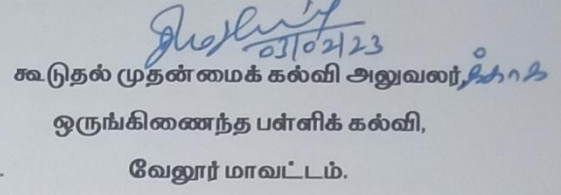 03/02/23
கூடுதல் முதன்மைக் கல்வி அலுவலர்க்காக
ஒருங்கிணைந்த பள்ளிக் கல்வி,
வேலூர் மாவட்டம்.